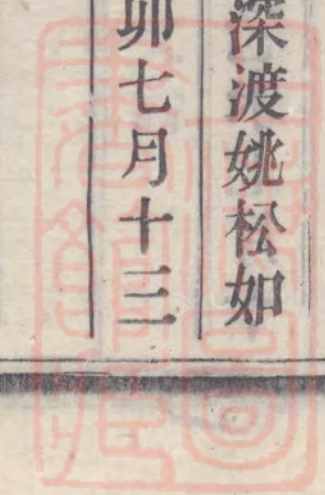 深渡姚松如
卯七月十三